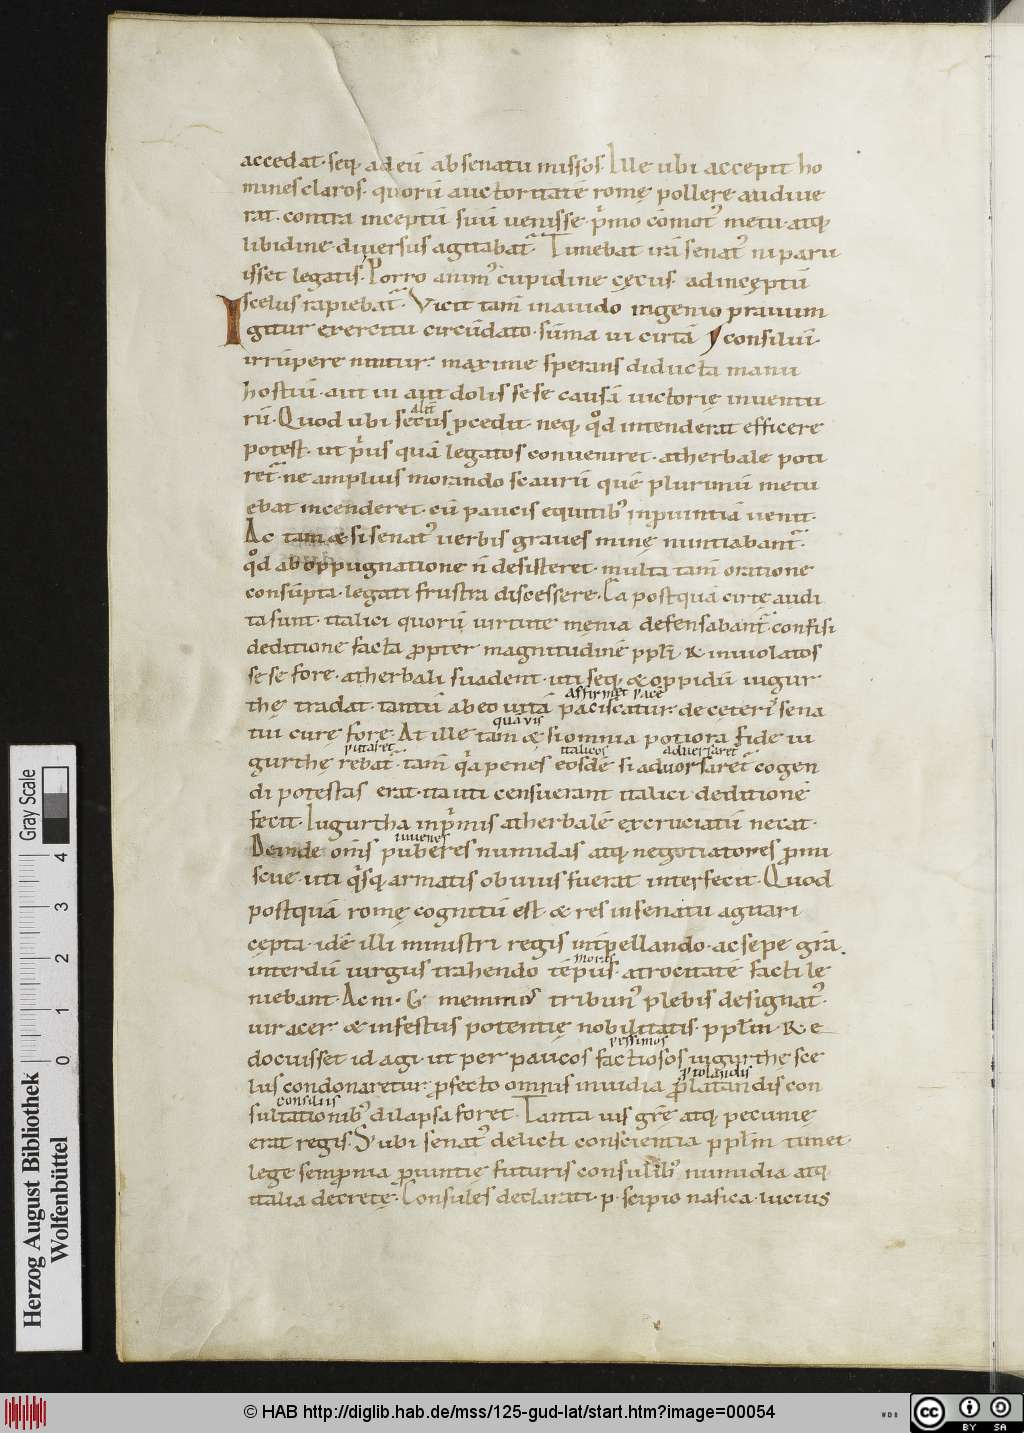 accedat· seq; ad eū ab senatu missos· Ille ubi accepit ho
mines claros· quorū auctoritatē romę pollere audiue
rat· contra inceptū suū uenisse· p̍mo cōmot᾽ metu· atq;
libidine diuersus agitabat᾽· Timebat irā senat᾽ ni paru
isset legatis· Porro anim᾽ cupidine cęcus· ad inceptū
scelus rapiebat᾽· Vicit tam̄ in auido ingenio prauum
Igitur exercitu circūdato· sūma ui cirtā consiliū·
irrūpere nititur· maxime sperans diducta manu
hostiū· aut ui aut dolis se se causā uictorię inuentu
aliť
rū· Quod ubi secus pcedit· neq; qd̊ intenderat efficere
potest· ut p̍us quā legatos conueniret· atherbale poti
ret᾽· ne amplius morando scaurū quē plurimū metu
ebat incenderet· cū paucis equitib᾽ in puintiā uenit·
Ac tam &si senat᾽ uerbis graues minę nuntiabant᾽·
qd̊ ab oppugnatione n̄ desisteret· multa tam̄ oratione
consūpta· legati frustra discessere· Ea postquā cirtę audi
ta sunt· italici quorū uirtute męnia defensabant᾽· confisi
deditione facta ppter magnitudinē ppl̄i R· inuiolatos
se se fore· atherbali suadent· uti seq; & oppidū iugur
affirmet pacē
thę tradat· tantū ab eo uitā paciscatur· de cęteris sena
quāuis
tui curę fore· At ille tam &si omnia potiora fide iu
putaret italicos aduersaret᾽
gurthę rebat᾽· tam̄ q̍a penes eosdē si aduorsaret᾽ cogen
di potestas erat· ita uti censuerant italici deditionē
fecit· Iugurtha inp̍mis atherbalē excruciatū necat·
iuuenes
Deinde om̄is puberes numidas atq; negotiatores pmi
scue· uti q̍sq; armatis obuius fuerat interfecit· Quod
postquā romę cognitū est· & res in senatu agitari
cępta· idē illi ministri regis int̄pellando· ac sępe gr̄a·
moras
interdū iurgiis trahendo tēpus· atrocitatē facti le
niebant· Ac ni· G· memmius tribun᾽ plebis designat᾽·
uir acer & infestus potentię nobilitatis· ppl̄m· R· e
pessimos
docuisset id agi· ut per paucos factiosos iugurthę sce
plolandis
lus condonaretur· pfecto omnis inuidia platandis con
consiliis
sultationib᾽ dilapsa foret· Tanta uis gr̄ę atq; pecunię
erat regis· S; ubi senat᾽ delicti conscientia ppl̄m timet·
lege sempnia puintię futuris consulib᾽ numidia atq;
italia decretę· Consules declarati· p· scipio nasica· lucius
Herzog August Bibliothek
Wolfenbüttel
Gray Scale
4
3
2
1
0
© HAB http://diglib.hab.de/mss/125-gud-lat/start.htm?image=00054
WDB
cc
BY SA